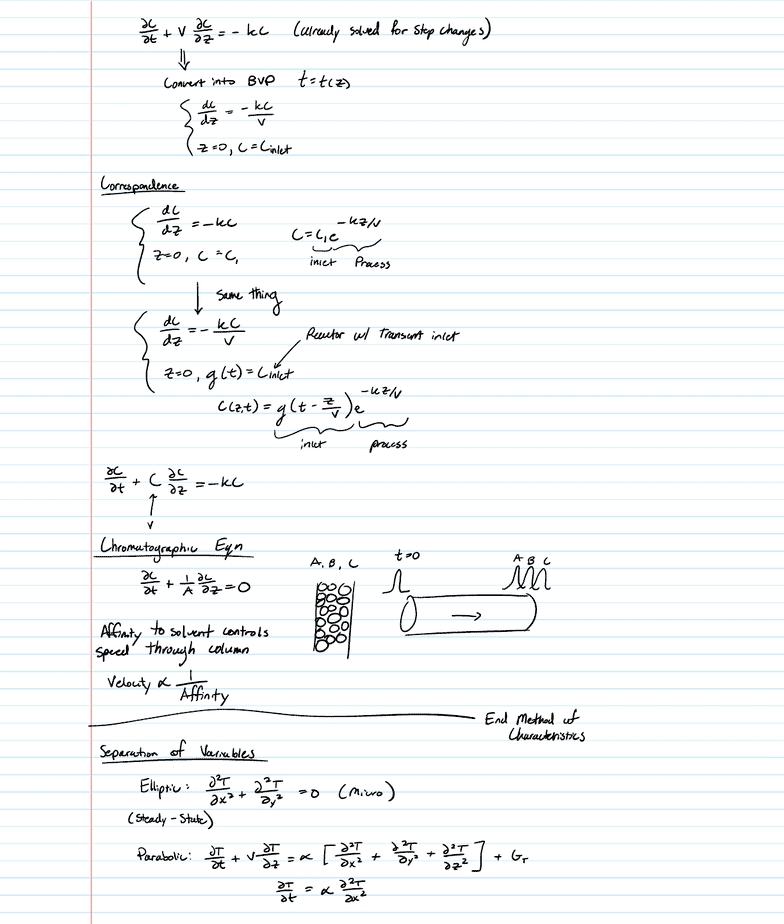 ∂C/∂t + V ∂C/∂z = - kC (already solved for step changes)
⇓
Convert into BVP t = t(z)
dC/dz = -kC/V
z=0, C = Cinlet
Correspondence
dC/dz = -kC
z=0, C = C₁
C = C₁e^(-kz/V)
inlet Process
↓ same thing
dC/dz = - kC/V
Reactor w/ transient inlet
z=0, g(t) = Cinlet
C(z,t) = g(t - z/V)e^(-kz/V)
inlet process
∂C/∂t + C ∂C/∂z = -kC
↑
V
Chromatographic Eqn
∂C/∂t + 1/A ∂C/∂z = 0
A, B, C
t=0
A B C
Affinity to solvent controls
speed through column
Velocity ∝ 1/Affinity
End Method of
Characteristics
Separation of Variables
Elliptic: ∂²T/∂x² + ∂²T/∂y² = 0 (Micro)
(Steady-State)
Parabolic: ∂T/∂t + V∂T/∂z = ∝ [∂²T/∂x² + ∂²T/∂y² + ∂²T/∂z²] + G_T
∂T/∂t = ∝ ∂²T/∂x²